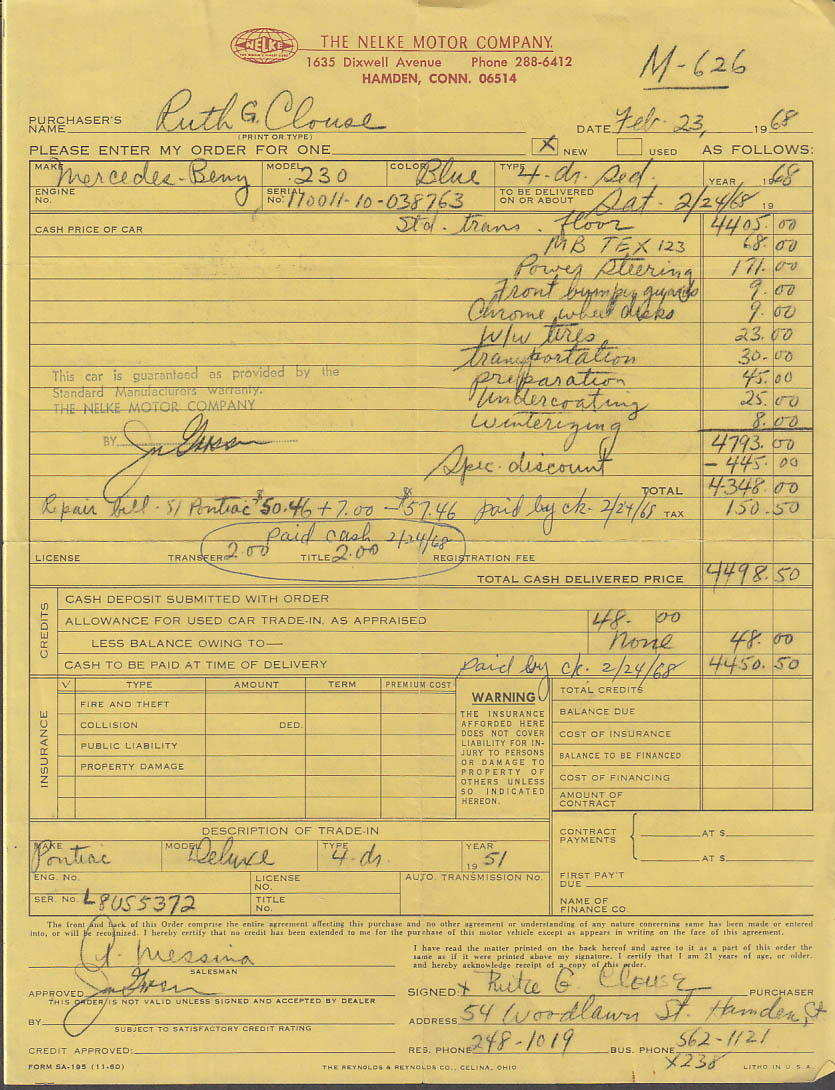 NELKE
THE NELKE MOTOR COMPANY
1635 Dixwell Avenue Phone 288-6412
HAMDEN, CONN. 06514
M-626
PURCHASER'S NAME Ruth G. Clouse
(PRINT OR TYPE)
DATE Feb. 23, 1968
PLEASE ENTER MY ORDER FOR ONE X NEW USED AS FOLLOWS:
MAKE Mercedes-Benz MODEL 230 COLOR Blue TYPE 4-dr. Sed. YEAR 1968
ENGINE No. SERIAL No. 110011-10-038763 TO BE DELIVERED ON OR ABOUT Sat. 2/24/68 19
CASH PRICE OF CAR Std. trans. floor 4405.00
MB TEX 123 68.00
Power Steering 171.00
Front bumper guards 9.00
Chrome wheel disks 9.00
W/W tires 23.00
transportation 30.00
preparation 45.00
Undercoating 25.00
Winterizing 8.00
This car is guaranteed as provided by the
Standard Manufacturers warranty.
THE NELKE MOTOR COMPANY
BY
4793.00
Spec. discount -445.00
TOTAL 4348.00
Repair bill - 51 Pontiac $50.46 + 7.00 - $57.46 paid by ck. 2/24/68 TAX 150.50
Paid cash 2/24/68
LICENSE TRANSFER 2.00 TITLE 2.00 REGISTRATION FEE
TOTAL CASH DELIVERED PRICE 4498.50
CREDITS
CASH DEPOSIT SUBMITTED WITH ORDER
ALLOWANCE FOR USED CAR TRADE-IN, AS APPRAISED 48.00
LESS BALANCE OWING TO— None 48.00
CASH TO BE PAID AT TIME OF DELIVERY paid by ck. 2/24/68 4450.50
INSURANCE
√ TYPE AMOUNT TERM PREMIUM COST
FIRE AND THEFT
COLLISION DED.
PUBLIC LIABILITY
PROPERTY DAMAGE
WARNING
THE INSURANCE
AFFORDED HERE
DOES NOT COVER
LIABILITY FOR IN-
JURY TO PERSONS
OR DAMAGE TO
PROPERTY OF
OTHERS UNLESS
SO INDICATED
HEREON.
TOTAL CREDITS
BALANCE DUE
COST OF INSURANCE
BALANCE TO BE FINANCED
COST OF FINANCING
AMOUNT OF CONTRACT
CONTRACT PAYMENTS AT $
AT $
FIRST PAY'T DUE
NAME OF FINANCE CO.
DESCRIPTION OF TRADE-IN
MAKE Pontiac MODEL Deluxe TYPE 4-dr. YEAR 1951
ENG. No. LICENSE NO. AUTO. TRANSMISSION No.
SER. No. L8US5372 TITLE No.
The front and back of this Order comprise the entire agreement affecting this purchase and no other agreement or understanding of any nature concerning same has been made or entered
into, or will be recognized. I hereby certify that no credit has been extended to me for the purchase of this motor vehicle except as appears in writing on the face of this agreement.
I have read the matter printed on the back hereof and agree to it as a part of this order the
same as if it were printed above my signature. I certify that I am 21 years of age, or older,
and hereby acknowledge receipt of a copy of this order.
Messina
SALESMAN
APPROVED
THIS ORDER IS NOT VALID UNLESS SIGNED AND ACCEPTED BY DEALER
BY
SUBJECT TO SATISFACTORY CREDIT RATING
CREDIT APPROVED:
SIGNED: x Ruth G. Clouse PURCHASER
ADDRESS 54 Woodlawn St. Hamden, Ct
RES. PHONE 248-1019 BUS. PHONE 562-1121
x238
FORM SA-195 (11-60) THE REYNOLDS & REYNOLDS CO., CELINA, OHIO LITHO IN U.S.A.